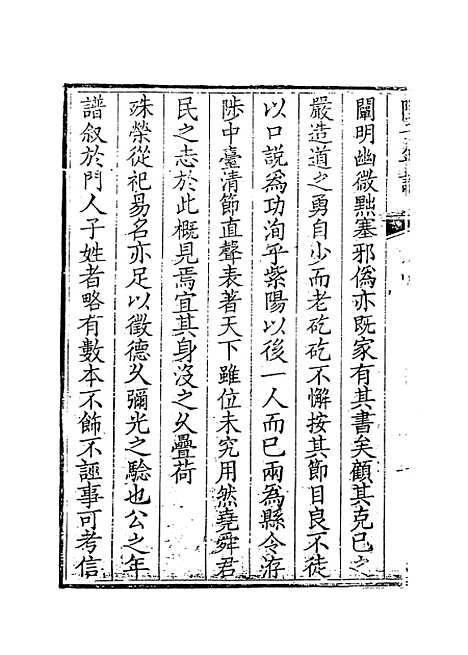 闡明幽微黜塞邪僞亦旣家有其書矣顧其克已之
嚴造道之勇自少而老矻矻不懈按其節目良不徒
以口說爲功洵乎紫陽以後一人而已兩爲縣令洊
陟中臺清節直聲表著天下雖位未究用然堯舜君
民之志於此槪見焉宜其身沒之久疊荷
殊榮從祀易名亦足以徵德久彌光之驗也公之年
譜叙於門人子姓者略有數本不飾不誣事可考信